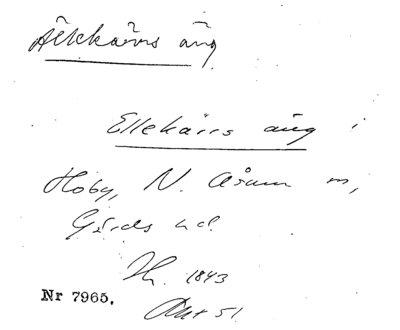 Ällekärrs äng
Ellekärrs äng i
Hoby, N. Åsum m,
Gärds hd.
1843
Nr 7965. Akt 51